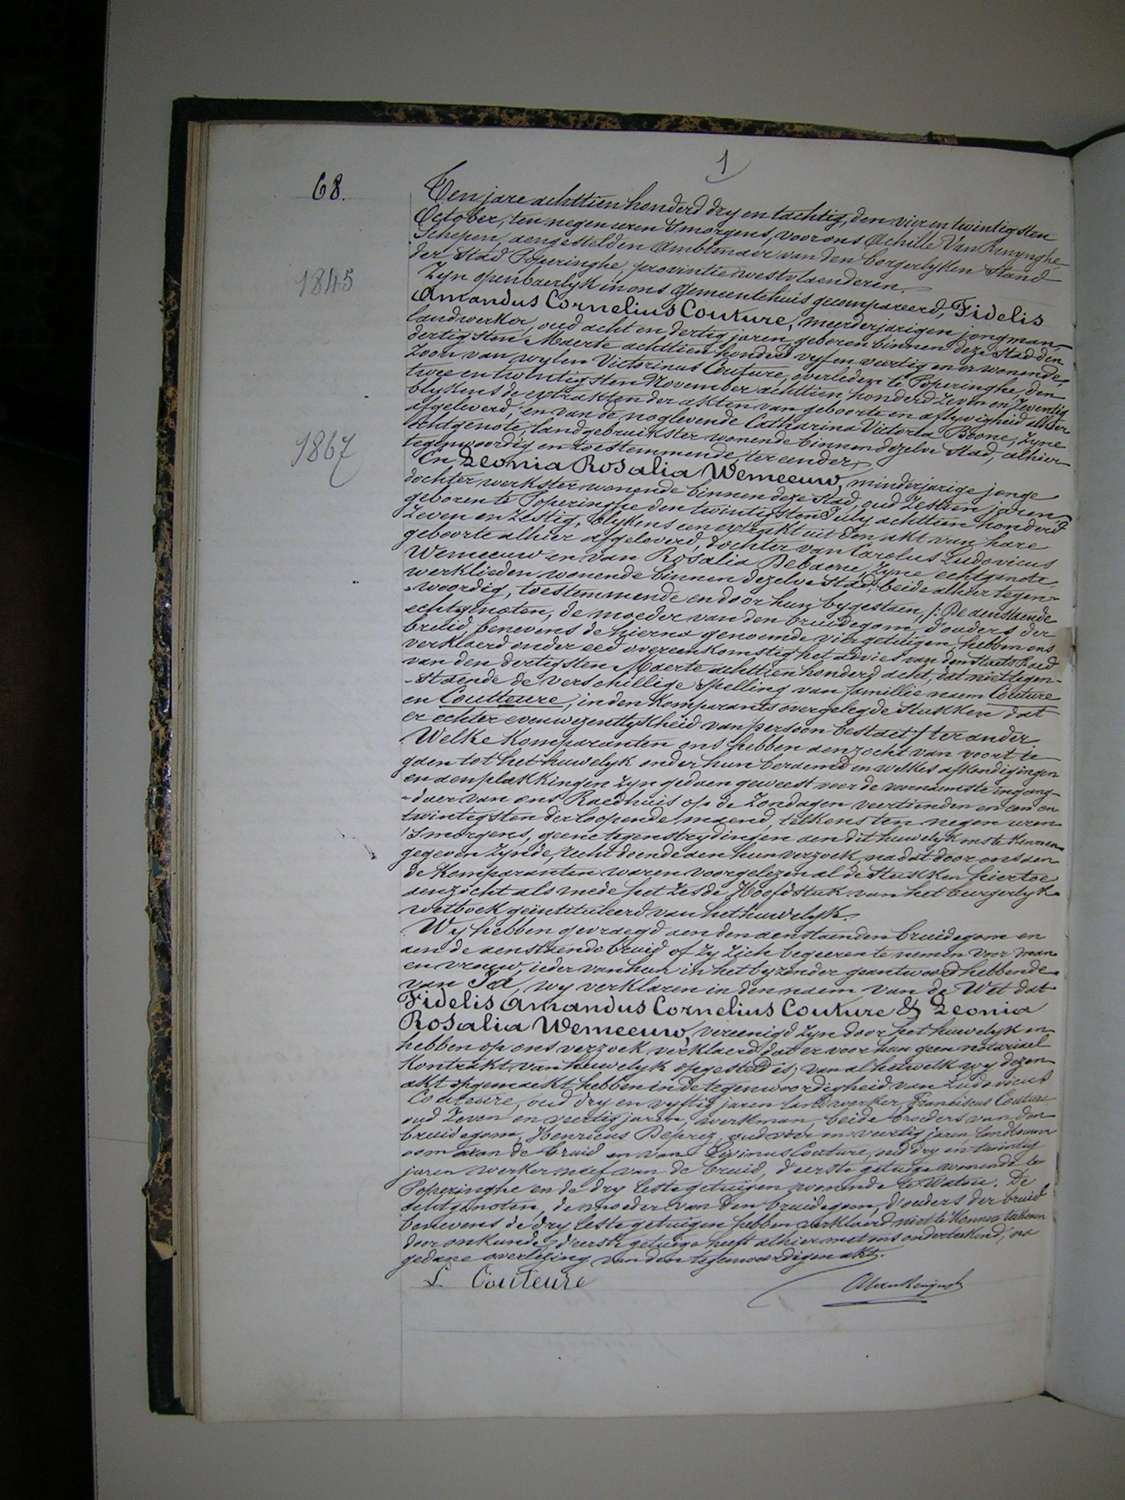 1
68.
Ten jare achttien honderd dry en tachtig, den vier en twintigsten
October, ten negen uren 's morgens, voor ons Achille Van Renynghe
Schepen, aengestelden Ambtenaer van den Borgerlyken Stand
der Stad Poperinghe, provintie Westvlaenderen.
1845
Zyn openbaerlyk in ons Gemeentehuis gecompareerd, Fidelis
Amandus Cornelius Couture, meerderjarigen jongman,
landwerker, oud acht en dertig jaren, geboren binnen deze Stad den
dertigsten Maerte achttien honderd vyf en veertig en er wonende,
Zoon van wylen Victorinus Couture, overleden te Poperinghe, den
twee en twintigsten November achttien honderd zeven en zeventig
blykens de extrakten der akten van geboorte en aflyvigheid alhier
afgeleverd, en van de noglevende Catharina Victoria Boone, Zyne
Echtgenote, landgebruikster wonende binnen dezelve Stad, alhier
1867
tegenwoordig en toestemmende ter eender,
En Leonia Rosalia Wemeeuw, minderjarige jonge
dochter werkster wonende binnen deze Stad, oud Zestien jaren
geboren te Poperinghe den twintigsten July achttien honderd
Zeven en Zestig, blykens een extrakt uit den akt van hare
geboorte alhier afgeleverd, dochter van Carolus Ludovicus
Wemeeuw en van Rosalia Debaene, Zyne echtgenote
werklieden wonende binnen dezelve Stad, beide alhier tegen-
woordig, toestemmende en door hun bygestaen, /: De aenstaende
echtgenoten, de moeder van den bruidegom, d'ouders der
bruid benevens de hierna genoemde vier getuigen hebben ons
verklaerd onder eed overeenkomstig het advies van den Staets Raed
van den dertigsten Maerte achttien honderd acht, dat niettegen-
-staende de verschillige spelling van familie naem Couture
en Coutteure, in den Komparants overgelegde Stukken dat
er echter eenwezentlykheid van persoon bestaet :/ ter ander
Welke Komparanten ons hebben aenzocht van voort te
gaen tot het huwelyk onder hun beraemd en welkes afkondigingen
en aenplakkingen Zyn gedaen geweest voor de voornaemste ingang-
-deur van ons Raedhuis op de Zondagen veertienden en een en
twintigsten der loopende maend, telkens ten negen uren
's morgens, geene tegenstrydingen aen dit huwelyk ons te kennen
gegeven zynde, recht doende aen hun verzoek, na dat door ons aen
de Komparanten waren voorgelezen al de Stukken hiertoe
aenzicht als mede het Zesde Hoofdstuk van het burgerlyk
wetboek geïntituleerd van het huwelyk.
Wy hebben gevraegd aen den aenstaenden bruidegom en
aen de aenstaende bruid of Zy Zich begeeren te nemen voor man
en vrouw, ieder van hun in het byzonder geantwoord hebbende
van Ja, wy verklaren in den naem van de Wet dat
Fidelis Amandus Cornelius Couture & Leonia
Rosalia Wemeeuw, vereenigd Zyn door het huwelyk en
hebben op ons verzoek verklaerd dat er voor hun geen notariael
Kontrakt van huwelyk opgesteld is, van al hetwelk wy dezen
akt opgemaekt hebben in de tegenwoordigheid van Ludovicus
Couteure, oud dry en vyftig jaren landwerker, Franciscus Couture
oud Zeven en veertig jaren, werkman, beide broeders van den
bruidegom, Henricus Deprez, oud vier en veertig jaren landbouwer
oom aen de bruid en van Livinus Couture, oud dry en twintig
jaren werker neef van de bruid, d'eerste getuige wonende te
Poperinghe en de dry leste getuigen wonende te Watou. De
echtgenoten, de moeder van den bruidegom, d'ouders der bruid
benevens de dry leste getuigen hebben verklaerd niet te konnen teekenen
door onkunde, d'eerste getuige heeft alhier met ons onderteekend, na
gedane overlezing van den tegenwoordigen akt.
L. Couteure